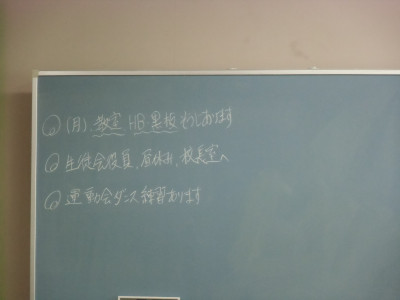 (月)、教室 HB 黒板 そうじあります
生徒会役員、昼休み、校長室へ
運動会ダンス練習あります